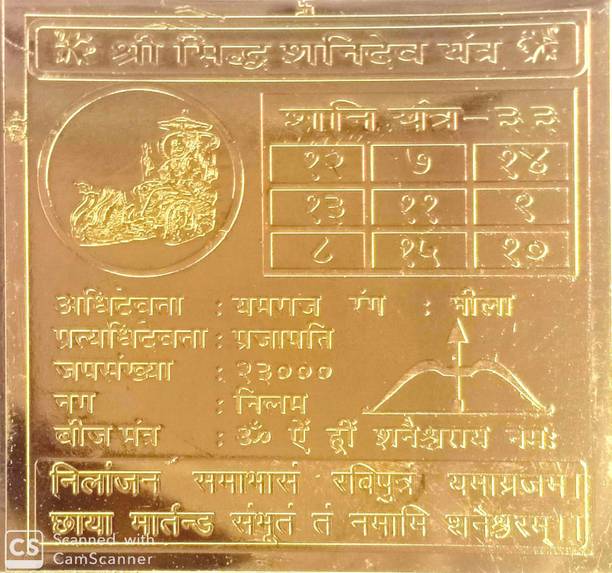 श्री सिद्ध शनिदेव यंत्र
शानि यंत्र-३३
१२ ७ १४
१३ ११ ९
८ १५ १०
अधिदेवता : यमराज रंग : नीला
प्रत्यधिदेवता : प्रजापति
जपसंख्या : २३०००
नग : निलम
बीज मंत्र : ॐ ऐं ह्रीं शनैश्चराय नमः
निलांजन समाभासं रविपुत्रं यमाग्रजम।
छाया मार्तन्ड संभूतं तं नमामि शनैश्वरम्।।
CS Scanned with
CamScanner